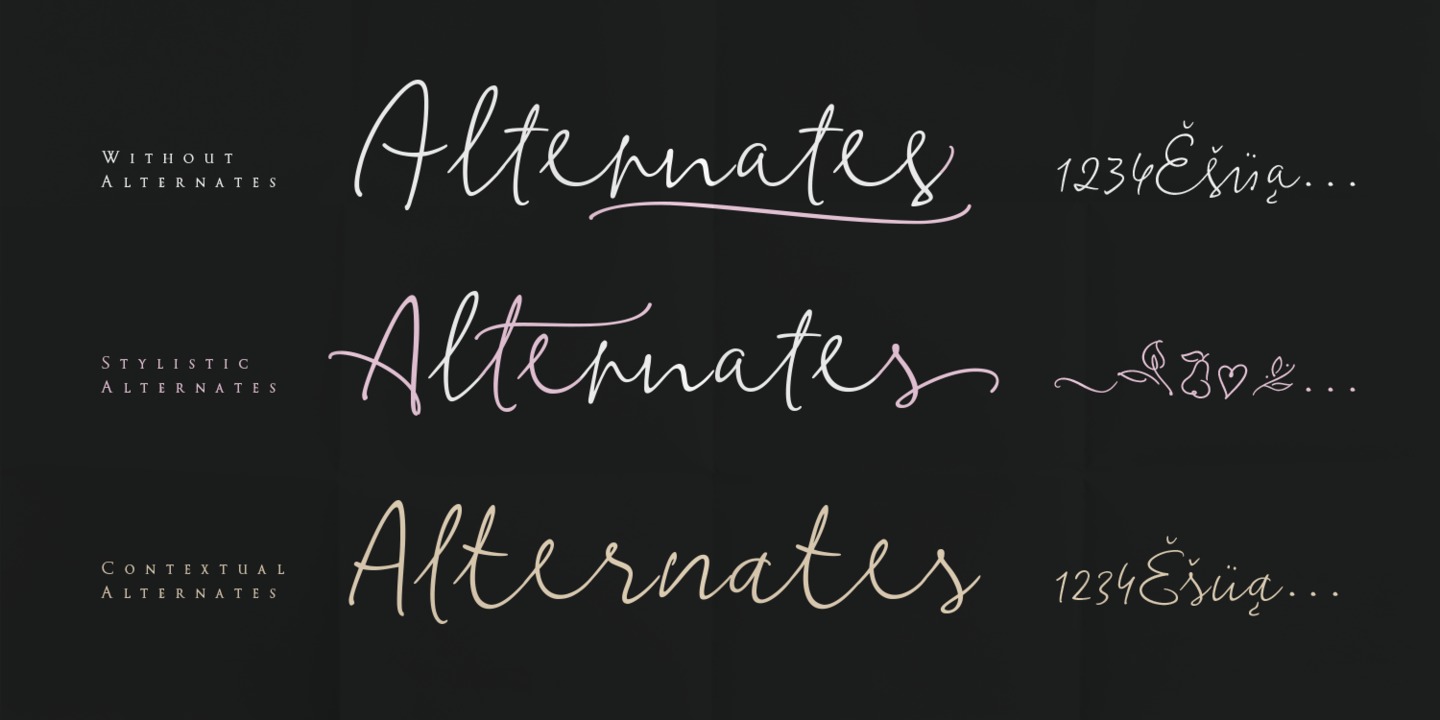 WITHOUT
ALTERNATES
Alternates
1234Ĕšüą...
STYLISTIC
ALTERNATES
Alternates
...
CONTEXTUAL
ALTERNATES
Alternates
1234Ĕšüą...